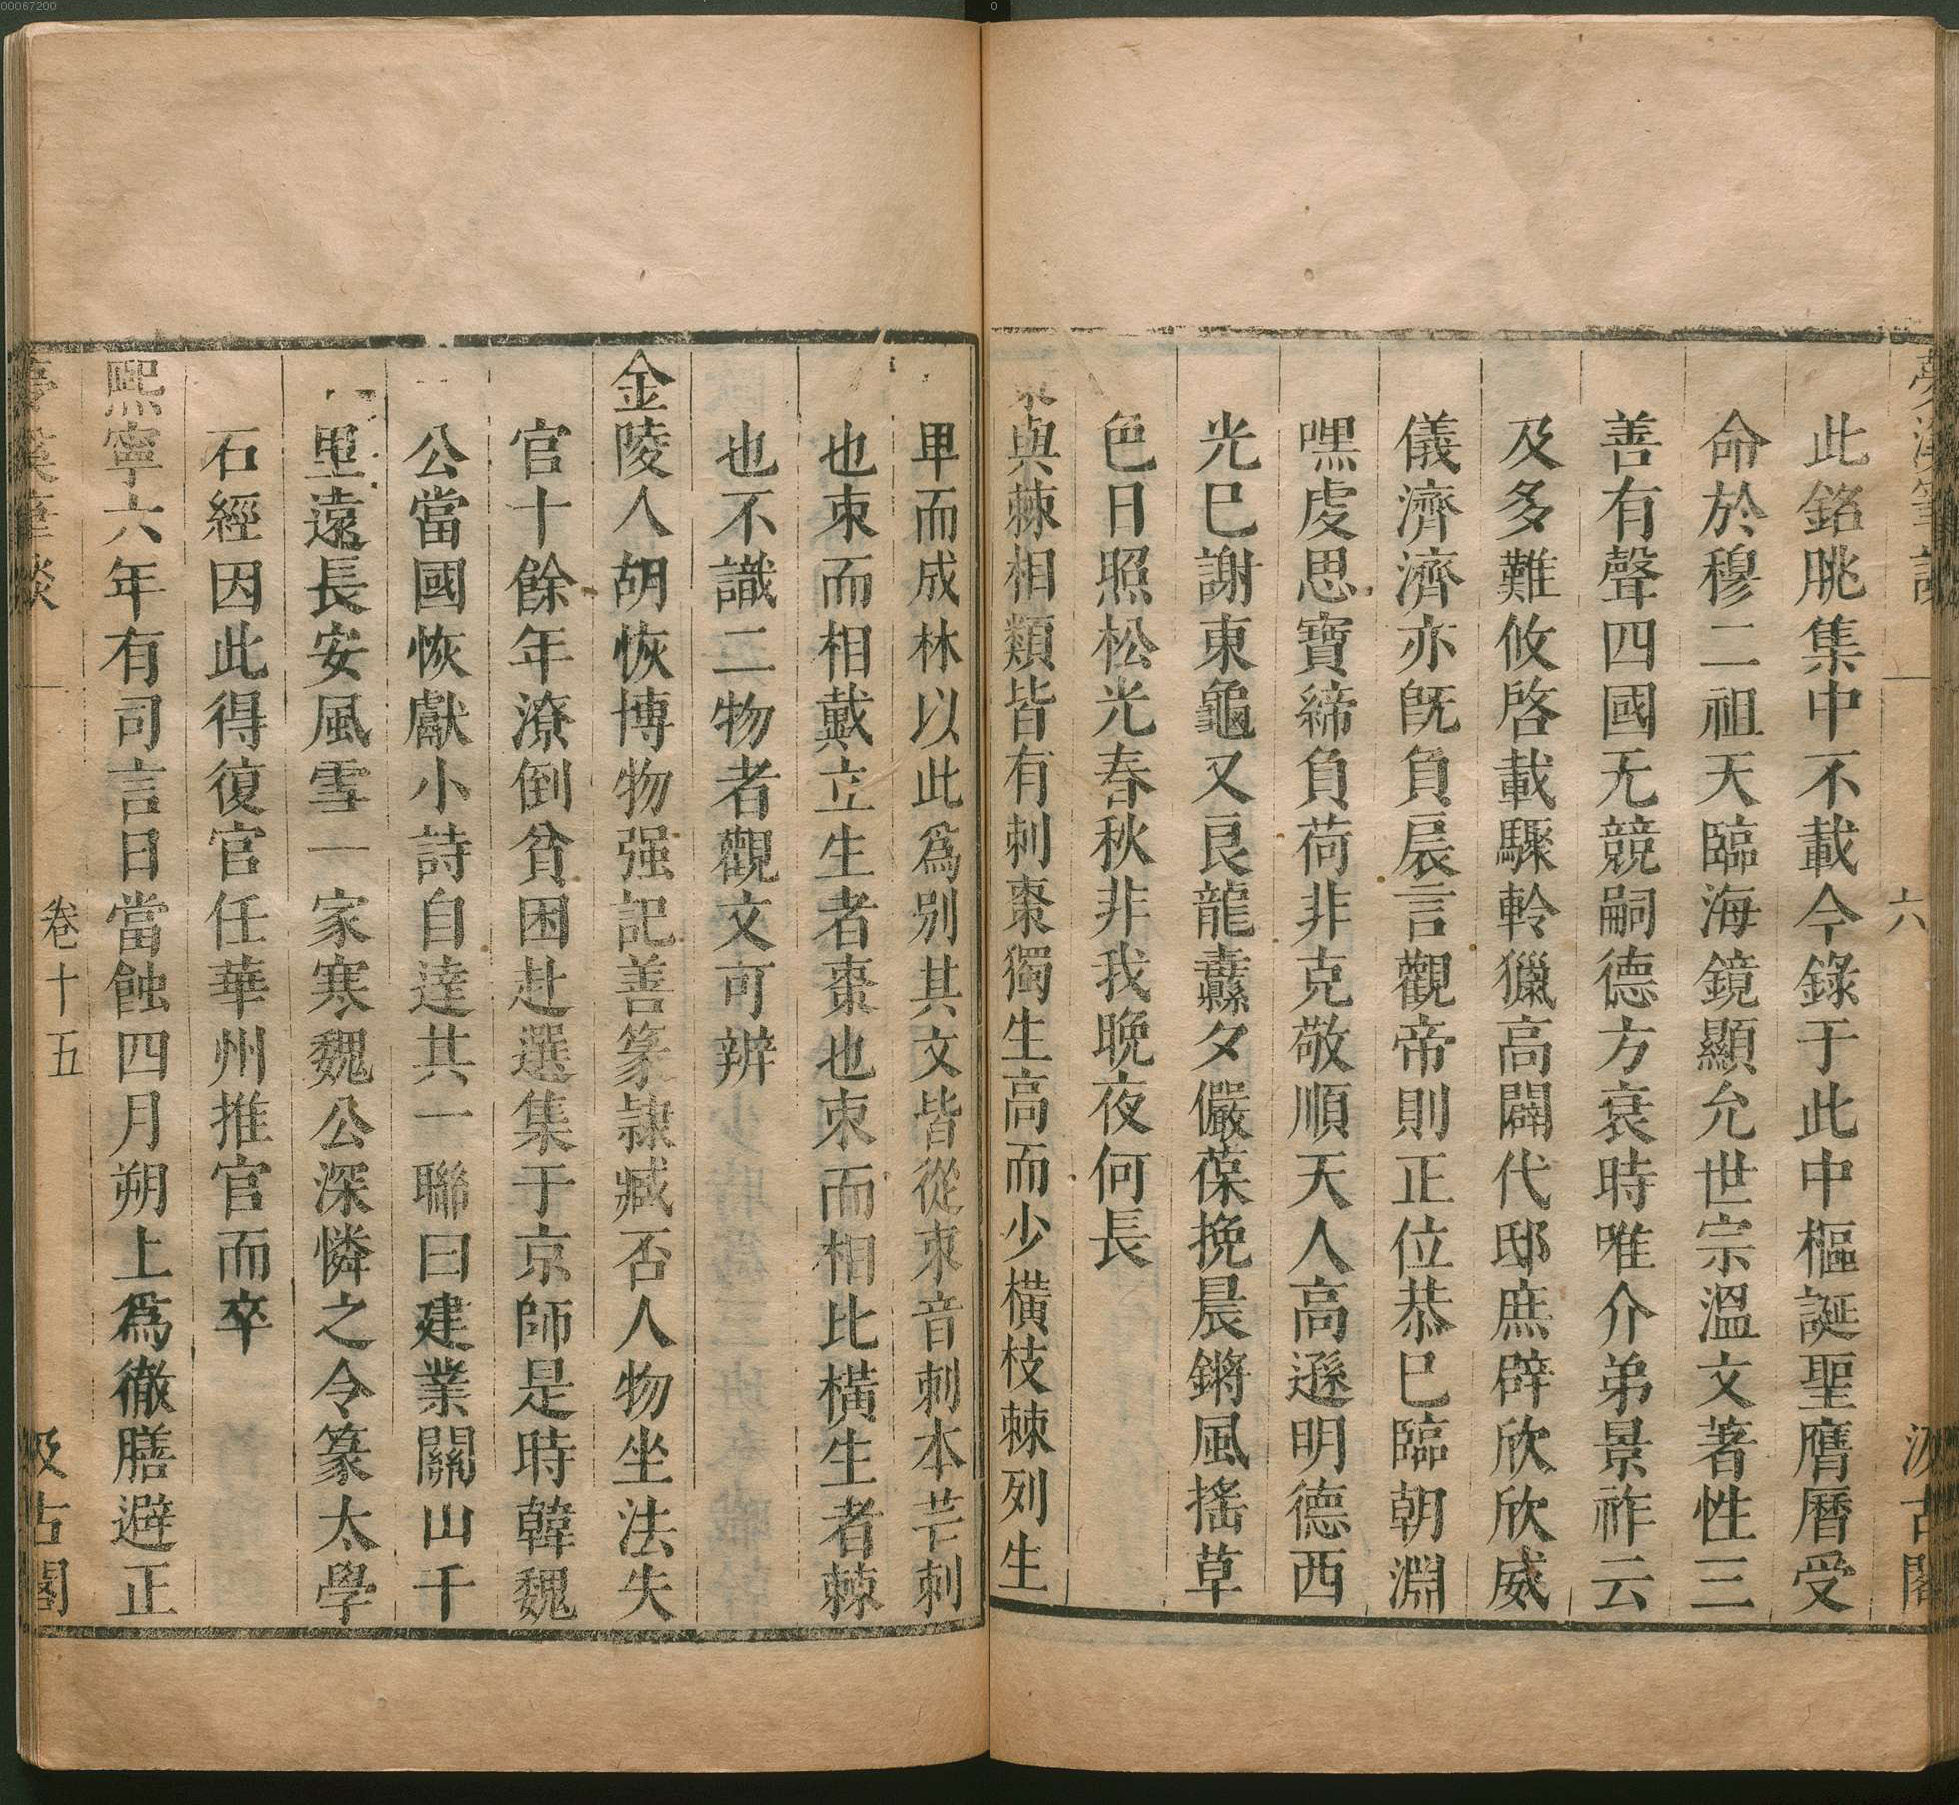 00067200
0
夢溪筆談
六
汲古閣
此銘眺集中不載今錄于此中樞誕聖膺曆受
命於穆二祖天臨海鏡顯允世宗溫文著性三
善有聲四國无競嗣德方衰時唯介弟景祚云
及多難攸啓載驟軨獵高闢代邸庶辟欣欣威
儀濟濟亦旣負扆言觀帝則正位恭巳臨朝淵
嘿虔思寶締負荷非克敬順天人高遜明德西
光巳謝東龜又良龍纛夕儼葆挽晨鏘風搖草
色日照松光春秋非我晚夜何長
棗與棘相類皆有刺棗獨生高而少橫枝棘列生
甲而成林以此爲別其文皆從朿音刺本芒刺
也朿而相戴立生者棗也朿而相比橫生者棘
也不識二物者觀文可辨
金陵人胡恢博物强記善篆隷臧否人物坐法失
官十餘年潦倒貧困赴選集于京師是時韓魏
公當國恢獻小詩自達其一聯曰建業關山千
里遠長安風雪一家寒魏公深憐之令篆太學
石經因此得復官任華州推官而卒
熙寧六年有司言日當蝕四月朔上爲徹膳避正
夢溪筆談
卷十五
汲古閣